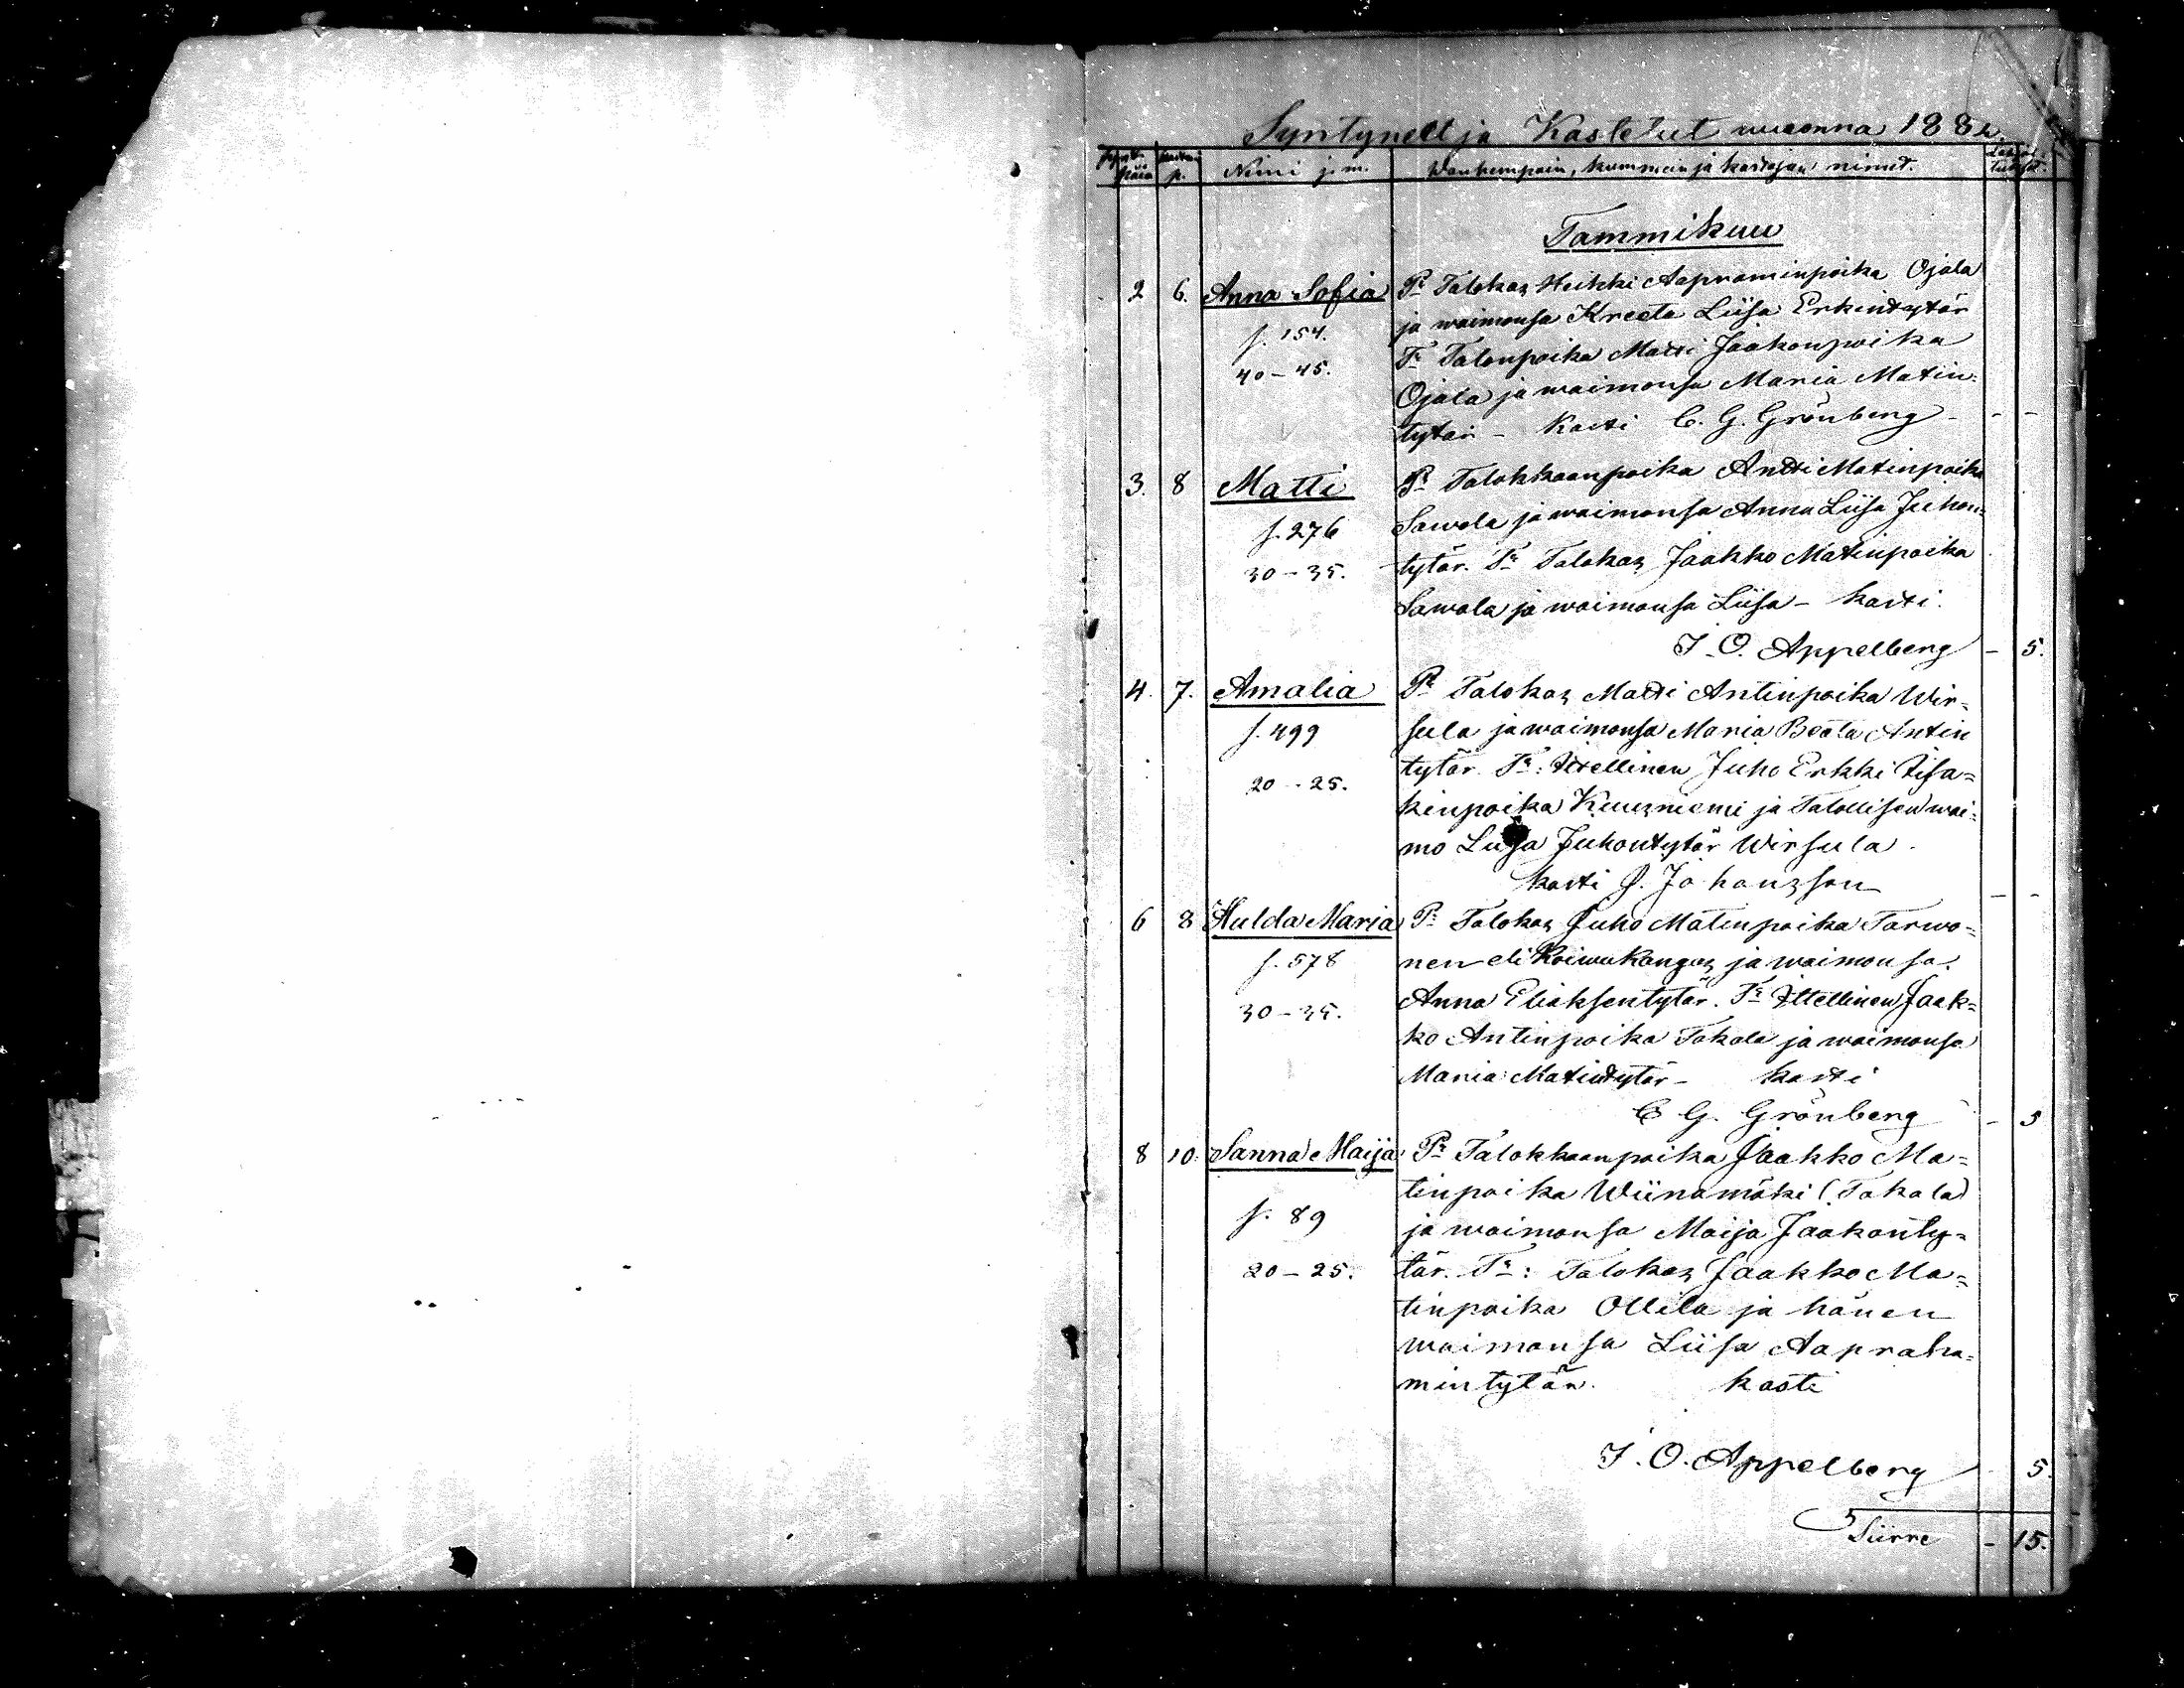 Syntyneet ja Kastetut wuonna 188
Synt. päiä Kaste p. Nimi j. m. Wanhempain, kummein ja kastajan nimet.
Tammikuu
2 6. Anna Sofia Pr Talokas Heikki Aapraminpoika Ojala
f. 154. ja waimonsa Kreeta Liisa Erkintytär
40-45. Tr Talonpoika Matti Jaakonpoika
Ojala ja waimonsa Maria Matin=
tytär - Kasti C. G. Grönberg - - -
3. 8 Matti Pr Talokkaanpoika Antti Matinpoika
f. 276 Sawola ja waimonsa Anna Liisa Juhon=
30-35. tytär. Tr Talokas Jaakko Matinpoika
Sawola ja waimonsa Liisa - Kasti.
J. O. Appelberg - 5.
4. 7. Amalia Pr Talokas Matti Antinpoika Wir=
f. 499 sula ja waimonsa Maria Beata Antin
20-25. tytär. Tr: Itellinen Juho Erkki Iisa=
kinpoika Kuusniemi ja Talollisen wai=
mo Liisa Juhontytär Wirsula.
Kasti J. Johansson - -
6 8 Hulda Maria Pr Talokas Juho Matinpoika Tarwo=
f. 578 nen eli Koiwukangas ja waimonsa.
30-35. Anna Eliaksentytär. Tr Itellinen Jaak=
ko Antinpoika Takala ja waimonsa
Maria Matintytär - Kasti
C. G. Grönberg - 5
8 10. Sanna Maija Pr Talokkaanpoika Jaakko Ma=
tinpoika Wiinamäki (Takala)
f. 89 ja waimonsa Maija Jaakonty=
20-25. tär. Tr: Talokas Jaakko Ma=
tinpoika Ollila ja hänen
waimonsa Liisa Aapraha=
mintytär. Kasti
J. O. Appelberg 5.
Siirre - 15.